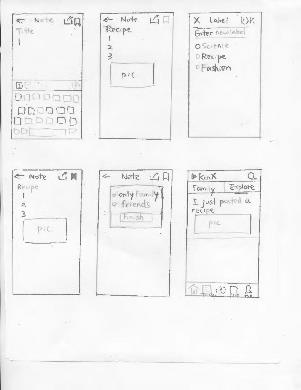 ← Note
Title
1
← Note
Recipe
1
2
3
pic
X Label OK
Enter new label
Science
Recipe
Fashion
← Note
Recipe
1
2
3
pic
← Note
only family
friends
finish
Family Explore
I just posted a
recipe
pic